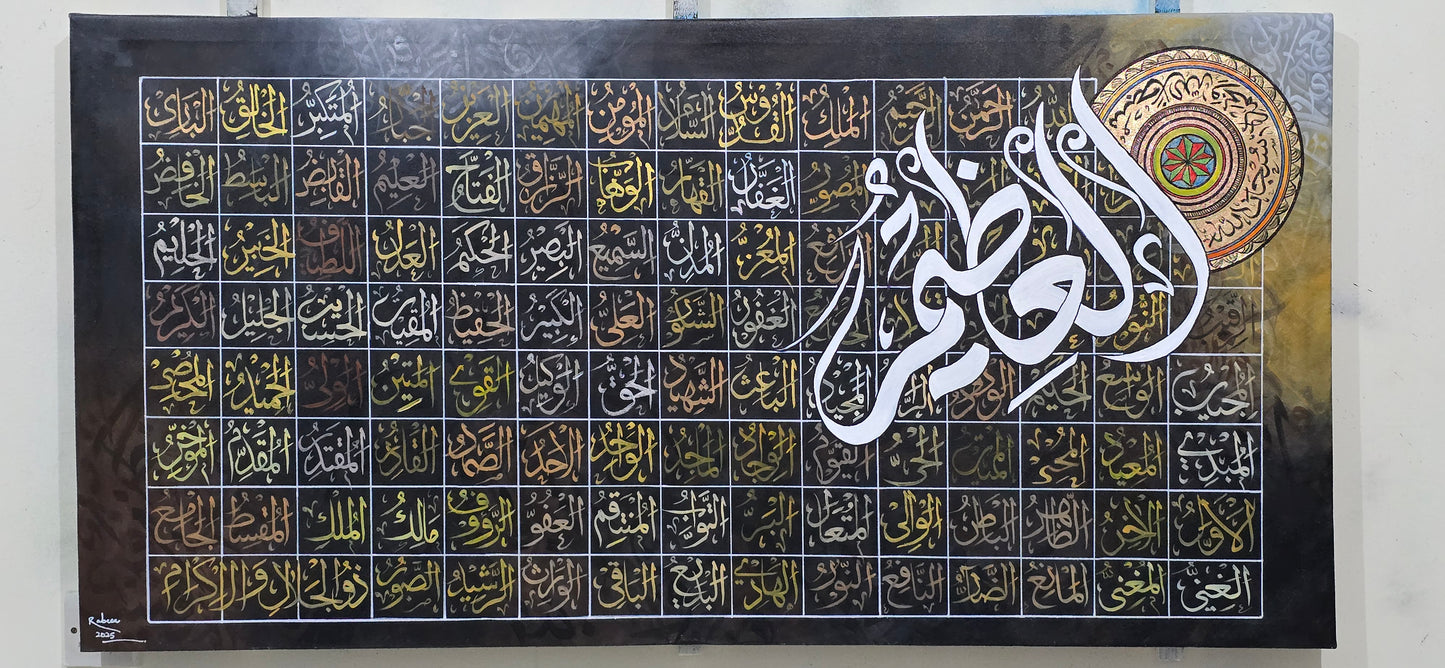 الرحمن الرحيم الملك القدوس السلام المؤمن المهيمن العزيز الجبار المتكبر الخالق البارئ
المصور الغفار القهار الوهاب الرزاق الفتاح العليم القابض الباسط الخافض
العظيم
المعز المذل السميع البصير الحكيم العدل اللطيف الخبير الحليم
الرقيب الغفور الشكور العلي الكبير الحفيظ المقيت الحسيب الجليل الكريم
المجيب الواسع الحكيم الودود المجيد الباعث الشهيد الحق الوكيل القوي المتين الولي الحميد المحصي
المبدئ المعيد المحيي المميت الحي القيوم الواجد الماجد الواحد الاحد الصمد القادر المقتدر المقدم المؤخر
الاول الاخر الظاهر الباطن الوالي المتعال البر التواب المنتقم العفو الرؤوف مالك الملك المقسط الجامع
الغني المغني المانع الضار النافع النور الهادي البديع الباقي الوارث الرشيد الصبور ذو الجلال و الاكرام
2025